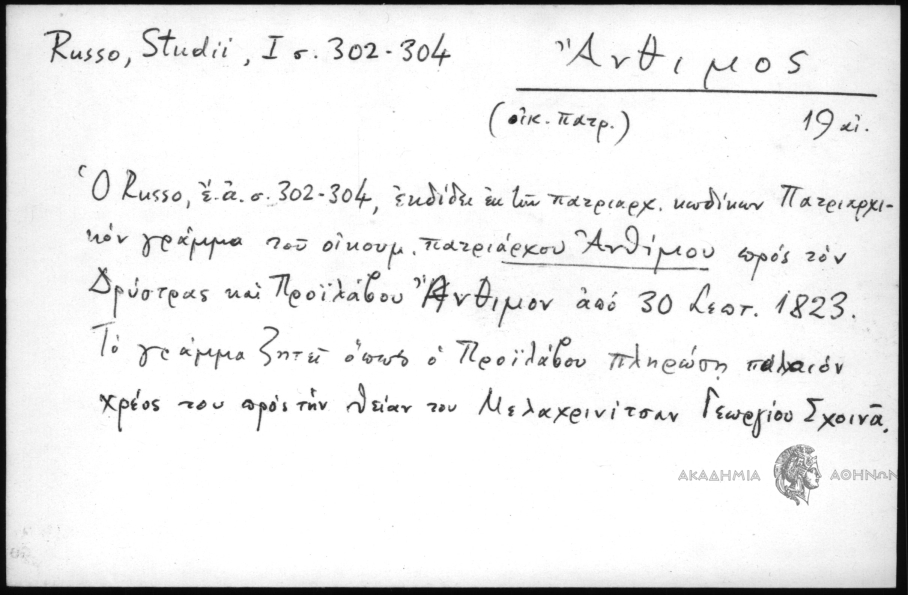 Russo, Studii, I σ. 302-304
Ἄνθιμος
(οἰκ. πατρ.) 19 αἰ.
Ὁ Russo, ἔ.ἀ. σ. 302-304, ἐκδίδει ἐκ τῶν πατριαρχ. κωδίκων Πατριαρχι-
κόν γράμμα τοῦ οἰκουμ. πατριάρχου Ἀνθίμου πρός τόν
Δρύστρας καί Προϊλάβου Ἄνθιμον ἀπό 30 Σεπτ. 1823.
Τό γράμμα ζητεῖ ὅπως ὁ Προϊλάβου πληρώσῃ παλαιόν
χρέος του πρός τήν θείαν του Μελαχρινίτσαν Γεωργίου Σχοινᾶ.
ΑΚΑΔΗΜΙΑ ΑΘΗΝΩΝ